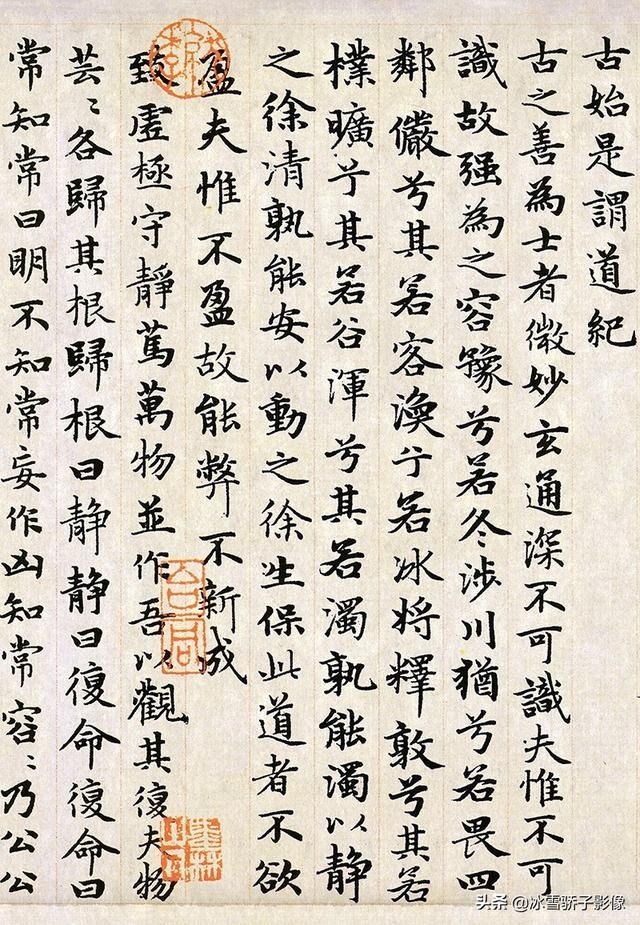 古始是謂道紀
古之善為士者微妙玄通深不可識夫惟不可
識故强為之容豫兮若冬涉川猶兮若畏四
鄰儼兮其若客渙兮若冰将釋敦兮其若
樸曠兮其若谷渾兮其若濁孰能濁以静
之徐清孰能安以動之徐生保此道者不欲
盈夫惟不盈故能弊不新成
致虛極守静篤萬物並作吾以觀其復夫物
芸〻各歸其根歸根曰静静曰復命復命曰
常知常曰明不知常妄作凶知常容〻乃公公
头条 @冰雪骄子影像